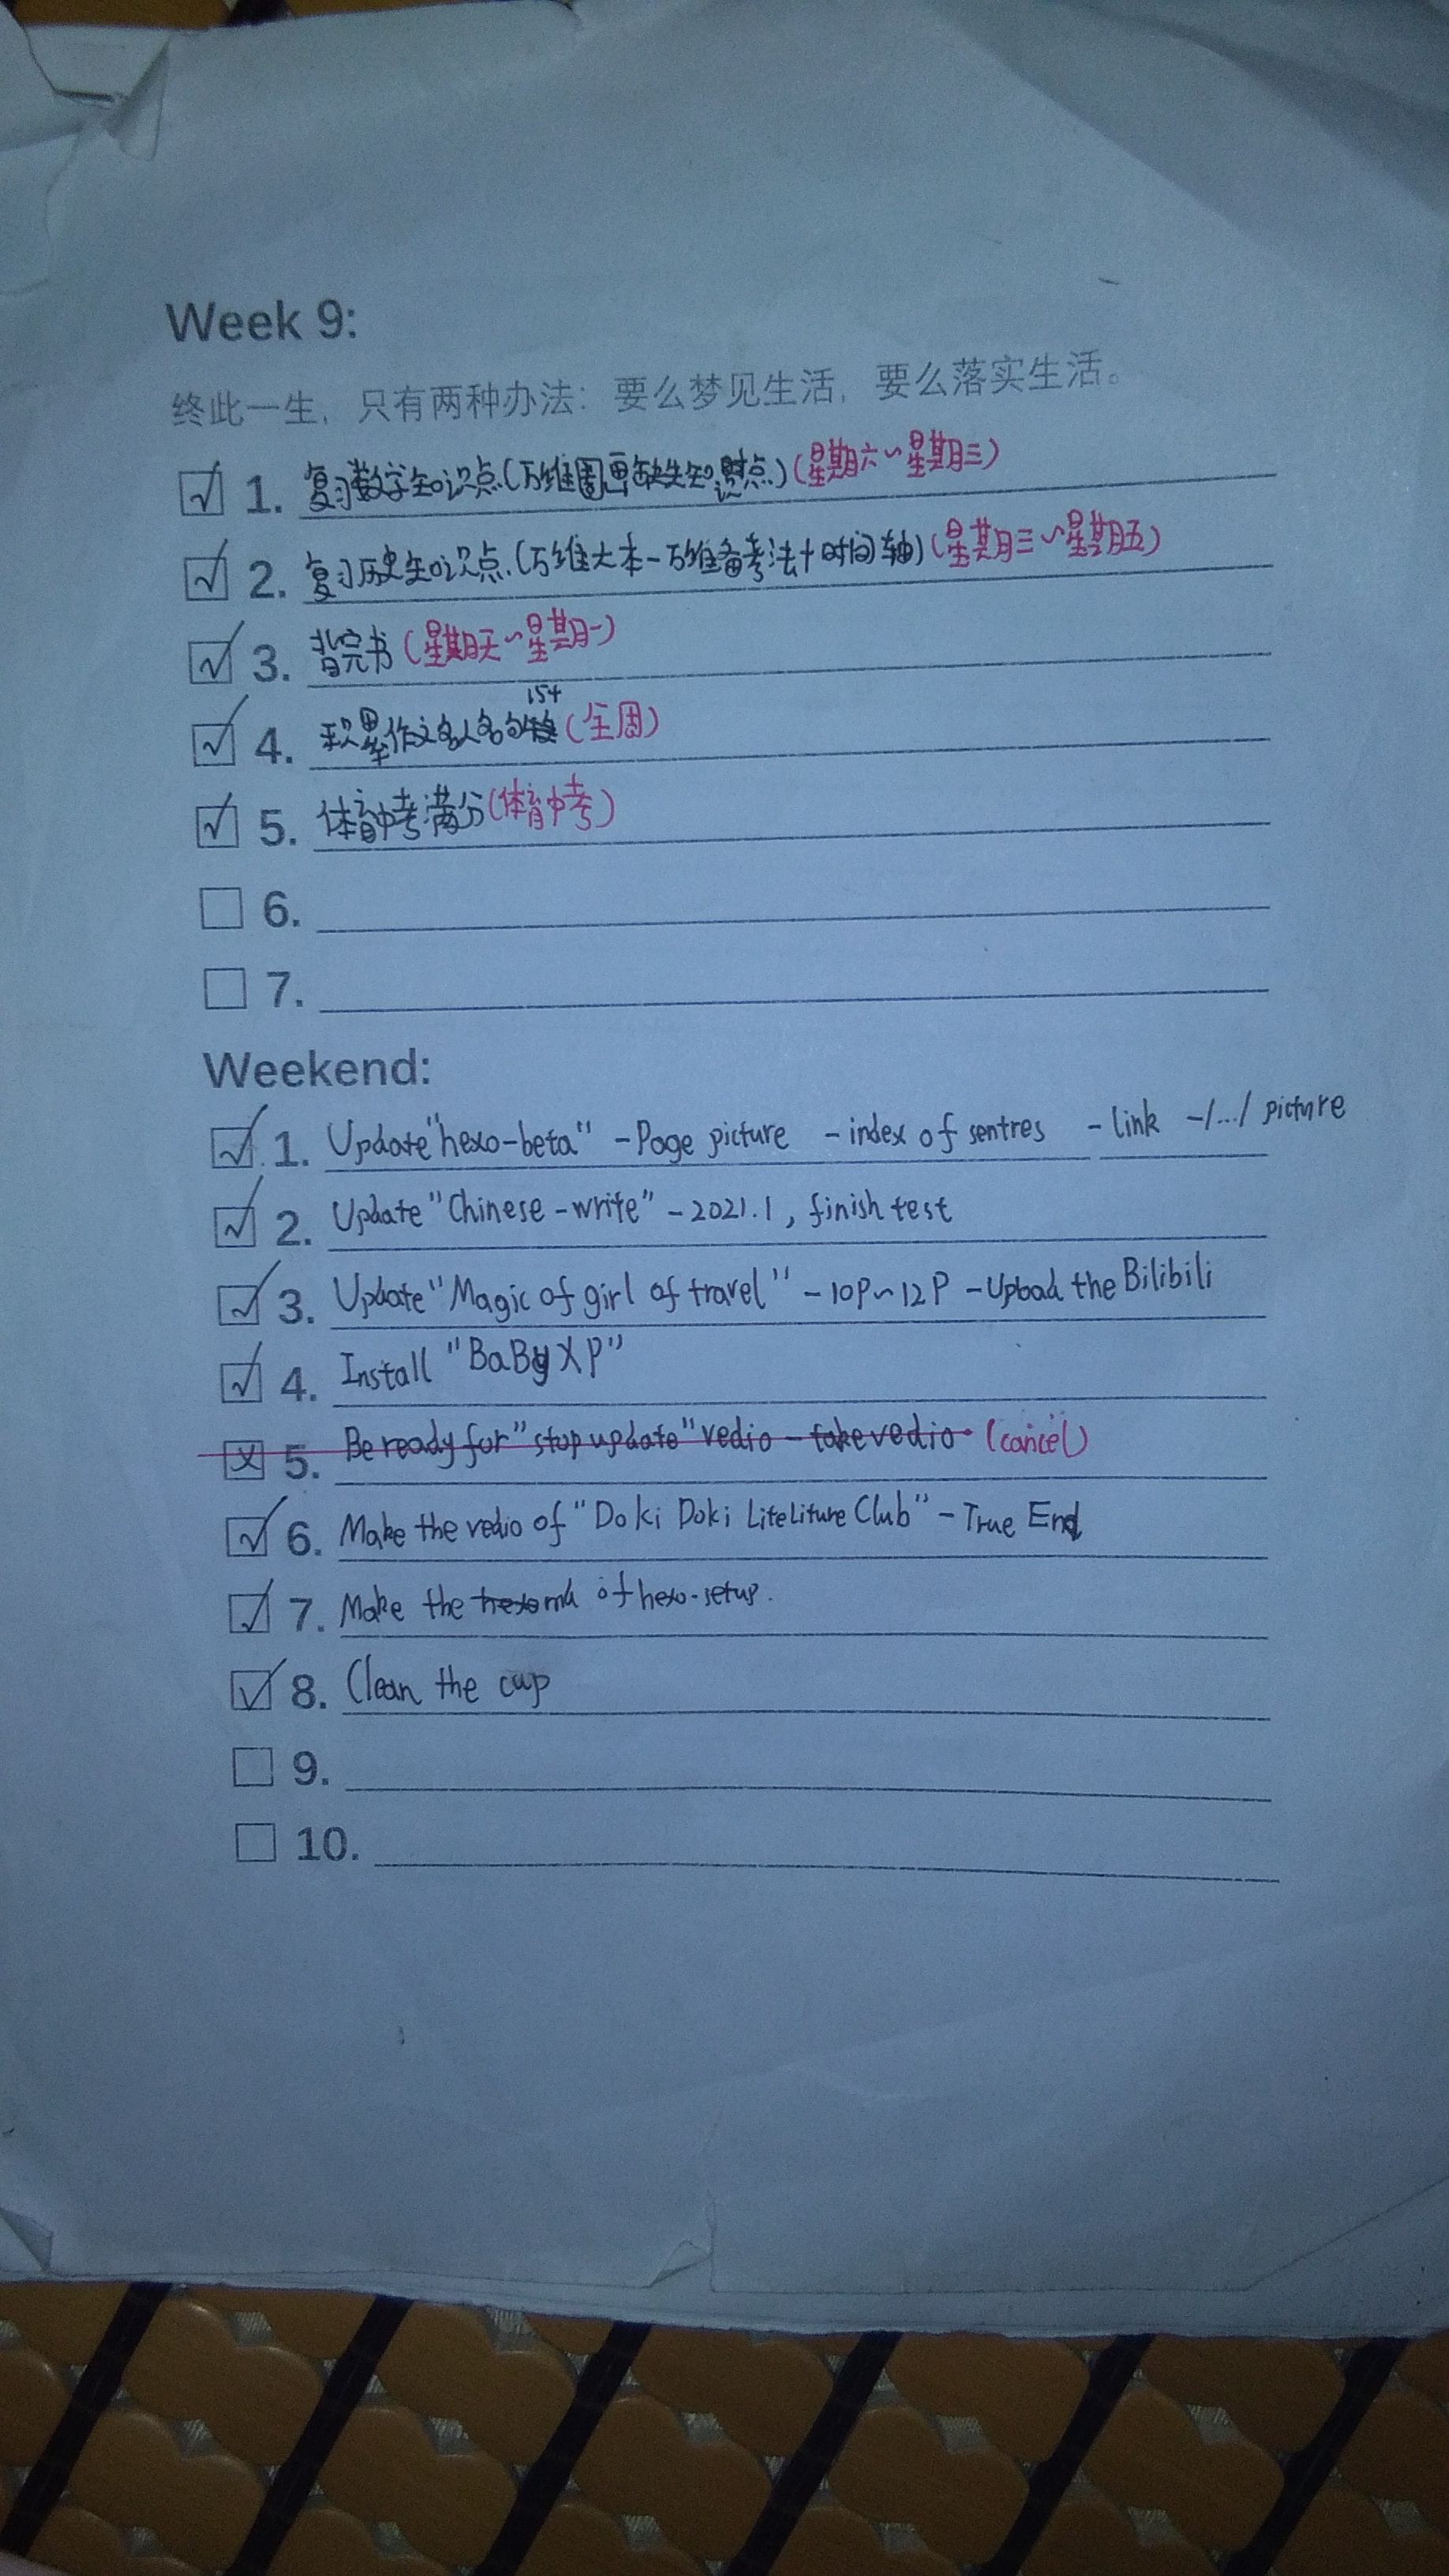 Week 9:
终此一生，只有两种办法：要么梦见生活，要么落实生活。
1. 复习数学知识点(万维圈画缺失知识点)(星期六~星期三)
2. 复习历史知识点.(万维大本-万维备考法+时间轴)(星期三~星期五)
3. 背完书(星期天~星期一)
4. 积累作文名人名句15个(全周)
5. 体育中考满分(体育中考)
6.
7.
Weekend:
1. Update"hexo-beta" -Page picture -index of sentres -link -/.../ picture
2. Update "Chinese-write" -2021.1, finish test
3. Update "Magic of girl of travel" -10P~12P -Upload the Bilibili
4. Install "BaByXP"
5. Be ready for "stop update" vedio - take vedio (cancel)
6. Make the vedio of "Doki Doki Liteliture Club" - True End
7. Make the hexo md of hexo-setup.
8. Clean the cup
9.
10.